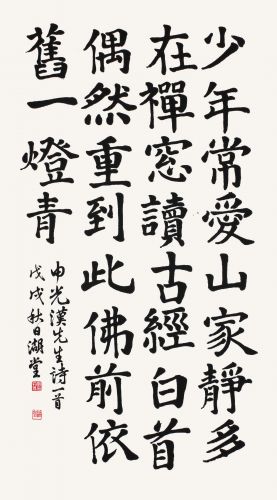 少年常愛山家靜多
在禪窓讀古經白首
偶然重到此佛前依
舊一燈青
申光漢先生詩一首
戊戌秋日湖堂